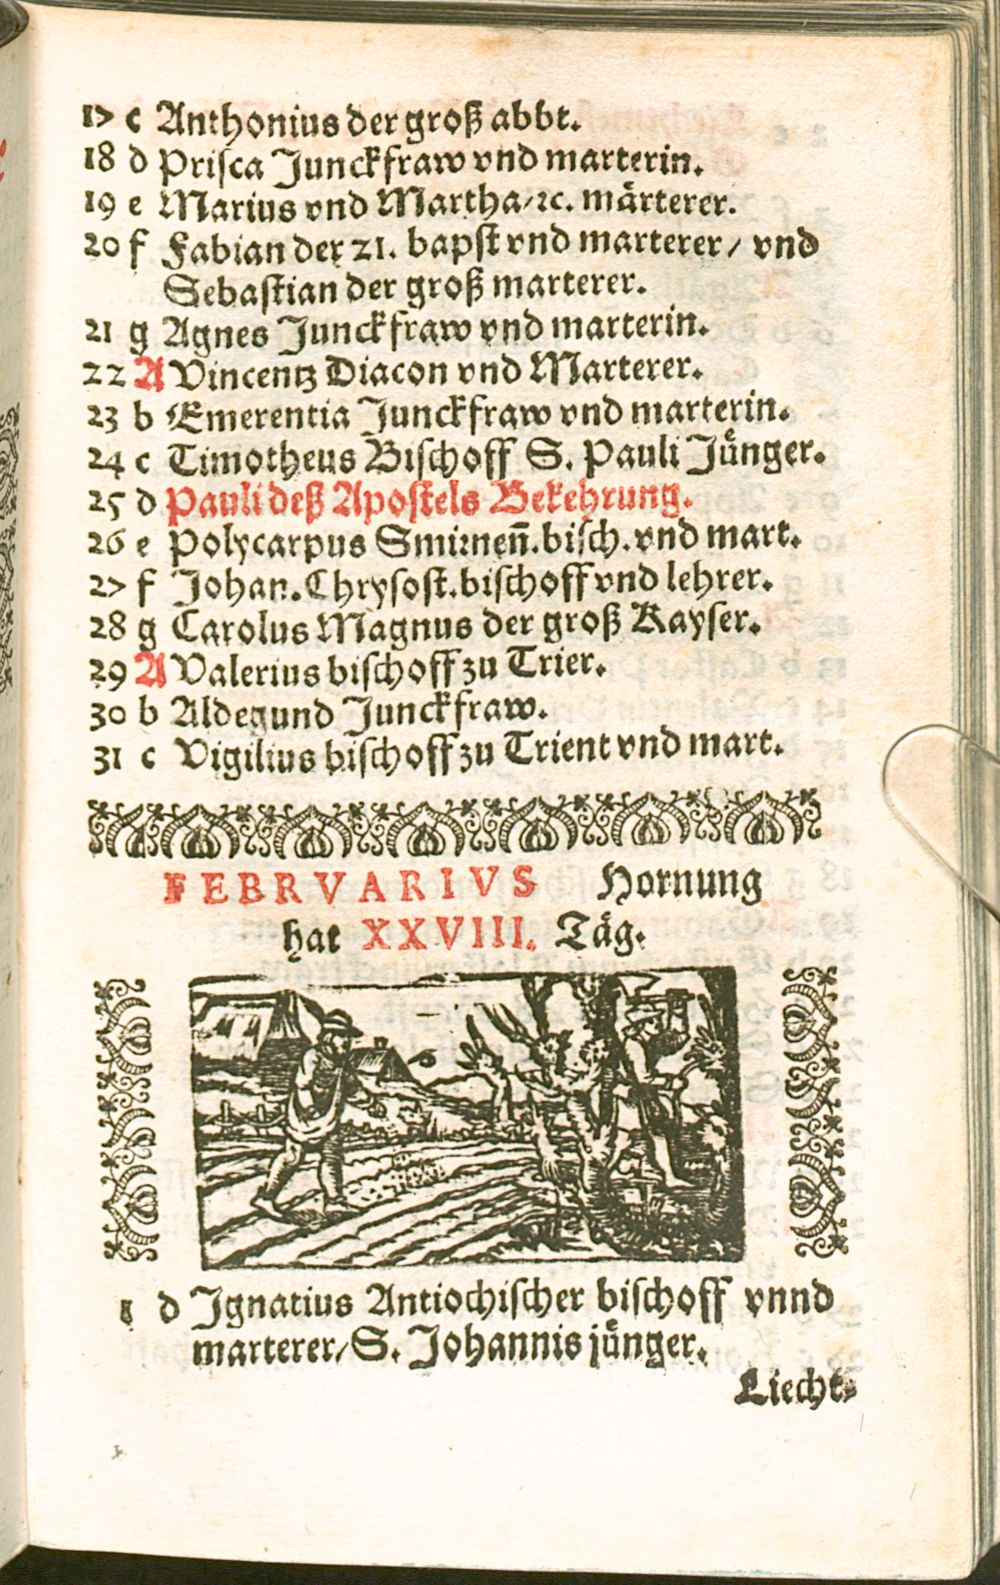 17 c Anthonius der groß abbt.
18 d Prisca Junckfraw vnd marterin.
19 e Marius vnd Martha/ꝛc. märterer.
20 f Fabian der 21. bapst vnd marterer/ vnd
Sebastian der groß marterer.
21 g Agnes Junckfraw vnd marterin.
22 A Vincentz Diacon vnd Marterer.
23 b Emerentia Junckfraw vnd marterin.
24 c Timotheus Bischoff S. Pauli Jünger.
25 d Pauli deß Apostels Bekehrung.
26 e Polycarpus Smirneñ. bisch. vnd mart.
27 f Johan. Chrysost. bischoff vnd lehrer.
28 g Carolus Magnus der groß Kayser.
29 A Valerius bischoff zu Trier.
30 b Aldegund Junckfraw.
31 c Vigilius bischoff zu Trient vnd mart.
FEBRVARIVS Hornung
hat XXVIII. Täg.
1 d Ignatius Antiochischer bischoff vnnd
marterer/ S. Johannis jünger.
Liecht-